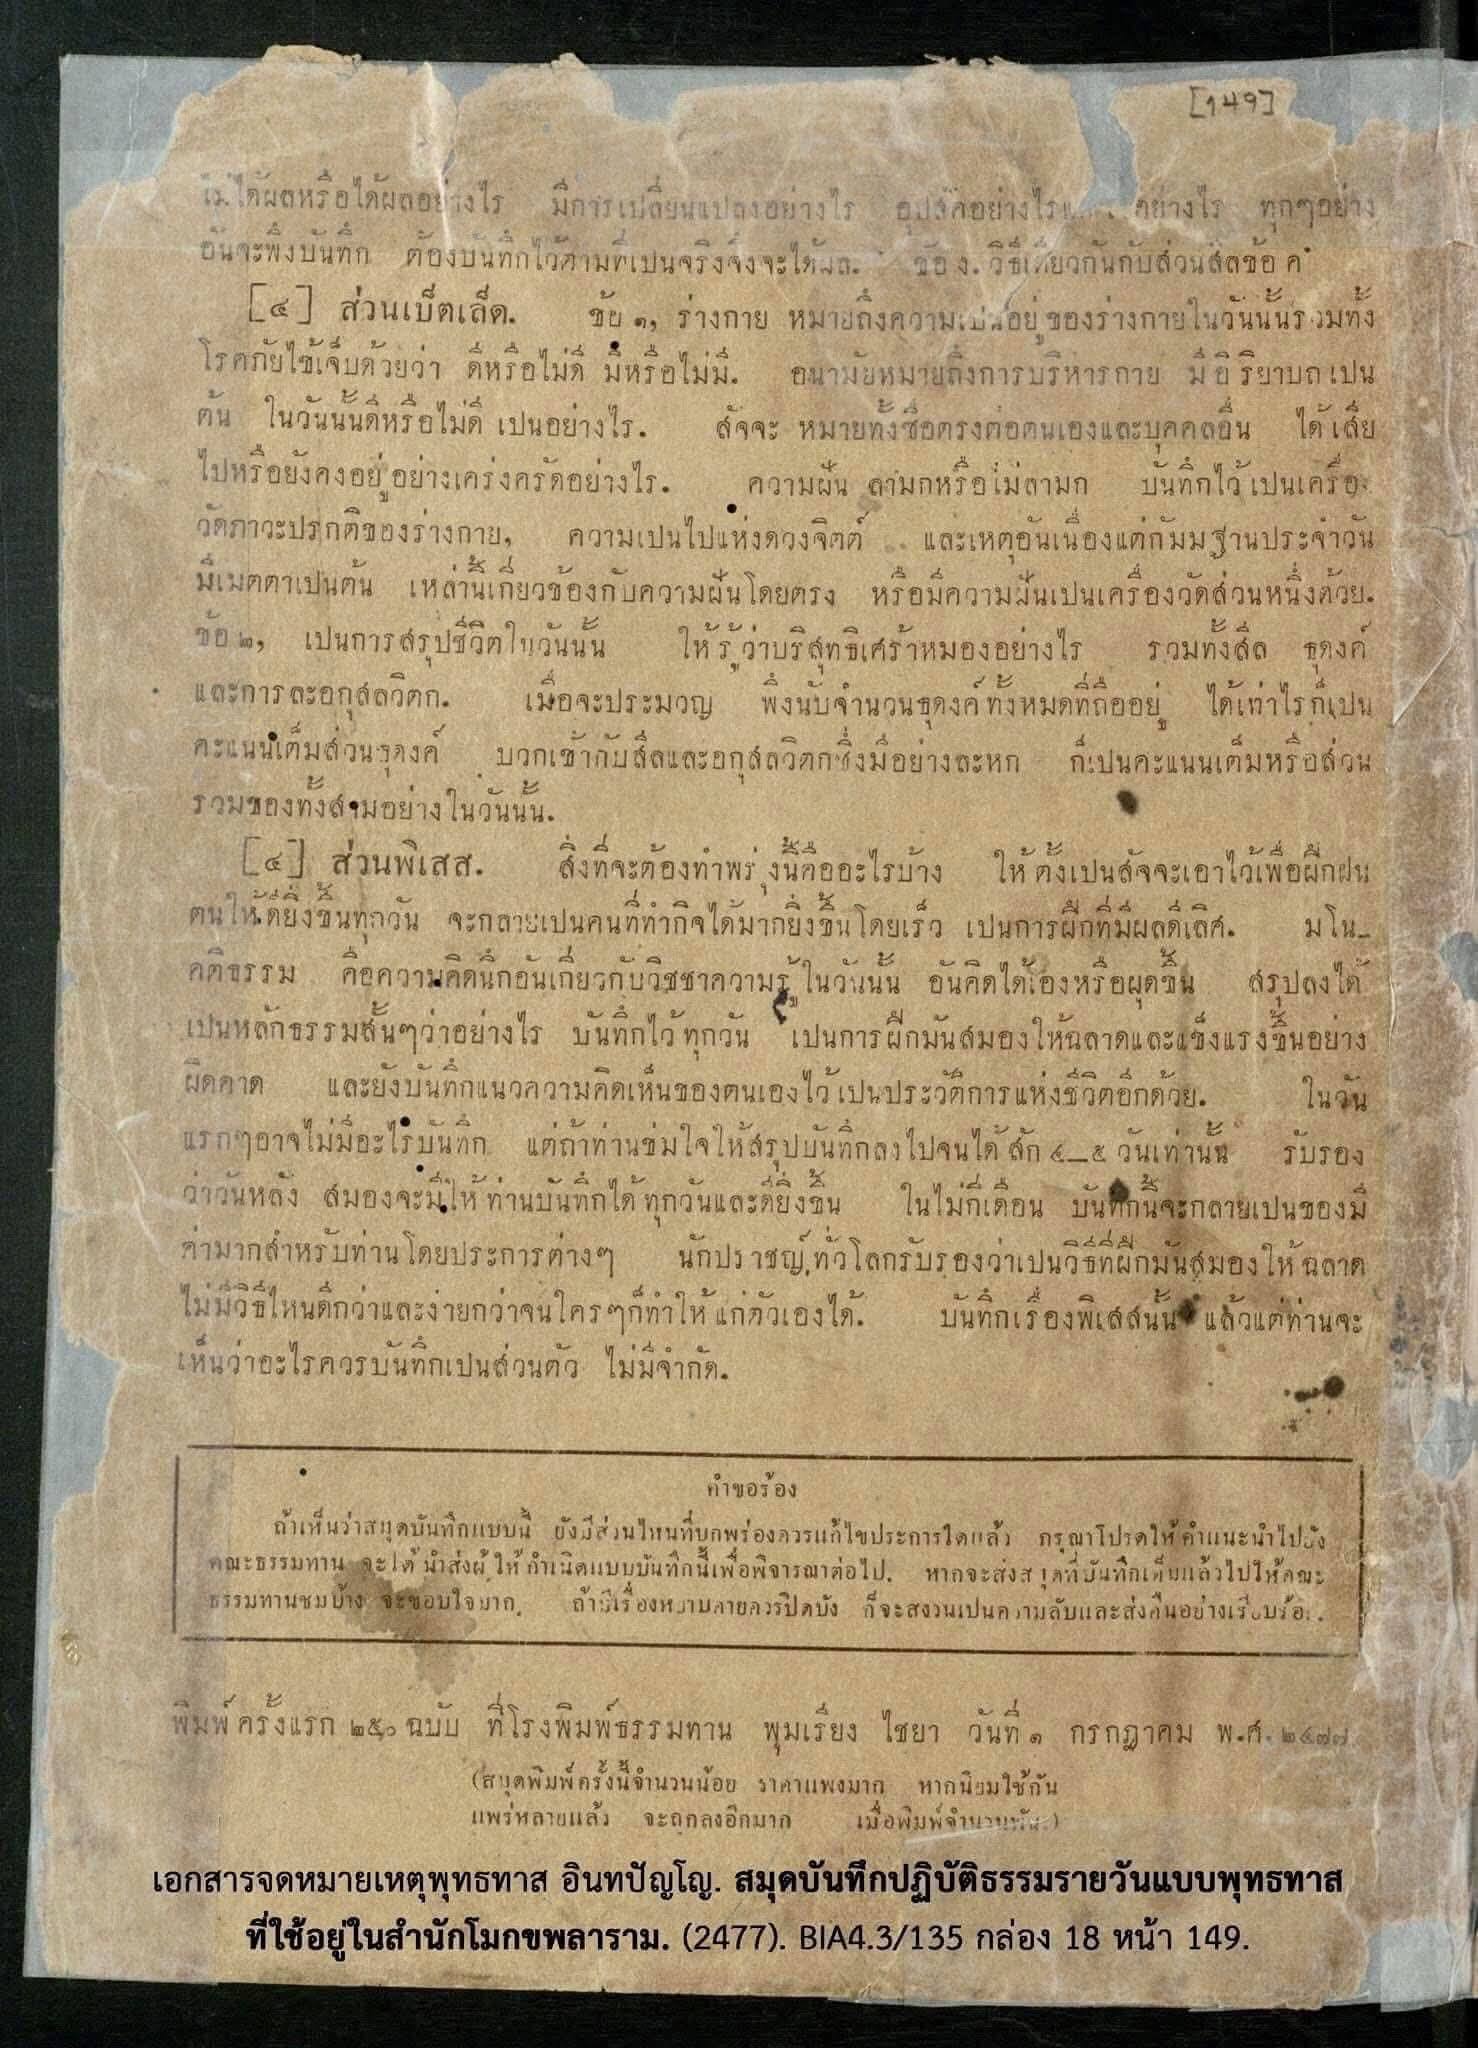 [149]
ไม่ได้ผลหรือได้ผลอย่างไร มีการเปลี่ยนแปลงอย่างไร อุปสัคอย่างไร อย่างไร ทุกๆอย่าง
อันจะพึงบันทึก ต้องบันทึกไว้ตามที่เปนจริงจึงจะได้ผล. ข้อ ง. วิธีเดียวกันกับส่วนสีลข้อ ค
[๔] ส่วนเบ็ตเล็ด. ข้อ ๑, ร่างกาย หมายถึงความเปนอยู่ของร่างกายในวันนั้นรวมทั้ง
โรคภัยไข้เจ็บด้วยว่า ดีหรือไม่ดี มีหรือไม่มี. อนามัยหมายถึงการบริหารกาย มีอิริยาบถเปน
ต้น ในวันนั้นดีหรือไม่ดี เปนอย่างไร. สัจจะ หมายทั้งซื่อตรงต่อตนเองและบุคคลอื่น ได้เสีย
ไปหรือยังคงอยู่อย่างเคร่งครัดอย่างไร. ความฝัน ลามกหรือไม่ลามก บันทึกไว้เปนเครื่อง
วัดภาวะปรกติของร่างกาย, ความเปนไปแห่งดวงจิตต์ และเหตุอันเนื่องแต่กัมมฐานประจำวัน
มีเมตตาเปนต้น เหล่านี้เกี่ยวข้องกับความฝันโดยตรง หรือมีความฝันเปนเครื่องวัดส่วนหนึ่งด้วย.
ข้อ ๒, เปนการสรุปชีวิตในวันนั้น ให้รู้ว่าบริสุทธิเศร้าหมองอย่างไร รวมทั้งสีล ธุดงค์
และการละอกุสลวิตก. เมื่อจะประมวญ พึงนับจำนวนธุดงค์ทั้งหมดที่ถืออยู่ ได้เท่าไรก็เปน
คะแนนเต็มส่วนธุดงค์ บวกเข้ากับสีลและอกุสลวิตกซึ่งมีอย่างละหก ก็เปนคะแนนเต็มหรือส่วน
รวมของทั้งสามอย่างในวันนั้น.
[๔] ส่วนพิเสส. สิ่งที่จะต้องทำพรุ่งนี้คืออะไรบ้าง ให้ตั้งเปนสัจจะเอาไว้เพื่อฝึกฝน
ตนให้ดียิ่งขึ้นทุกวัน จะกลายเปนคนที่ทำกิจได้มากยิ่งขึ้นโดยเร็ว เปนการฝึกที่มีผลดีเลิศ. มโน_
คติธรรม คือความคิดนึกอันเกี่ยวกับวิชชาความรู้ในวันนั้น อันคิดได้เองหรือผุดขึ้น สรุปลงได้
เปนหลักธรรมสั้นๆว่าอย่างไร บันทึกไว้ทุกวัน เปนการฝึกมันสมองให้ฉลาดและแข็งแรงขึ้นอย่าง
ผิดคาด และยังบันทึกแนวความคิดเห็นของตนเองไว้เปนประวัติการแห่งชีวิตอีกด้วย. ในวัน
แรกๆอาจไม่มีอะไรบันทึก แต่ถ้าท่านข่มใจให้สรุปบันทึกลงไปจนได้สัก ๔_๕ วันเท่านั้น รับรอง
ว่าวันหลัง สมองจะมีให้ท่านบันทึกได้ทุกวันและดียิ่งขึ้น ในไม่กี่เดือน บันทึกนี้จะกลายเปนของมี
ค่ามากสำหรับท่านโดยประการต่างๆ นักปราชญ์ทั่วโลกรับรองว่าเปนวิธีที่ฝึกมันสมองให้ฉลาด
ไม่มีวิธีไหนดีกว่าและง่ายกว่าจนใครๆก็ทำให้แก่ตัวเองได้. บันทึกเรื่องพิเสสนั้น แล้วแต่ท่านจะ
เห็นว่าอะไรควรบันทึกเปนส่วนตัว ไม่มีจำกัด.
คำขอร้อง
ถ้าเห็นว่าสมุดบันทึกแบบนี้ ยังมีส่วนไหนที่บกพร่องควรแก้ไขประการใดแล้ว กรุณาโปรดให้คำแนะนำไปยัง
คณะธรรมทาน จะได้นำส่งผู้ให้กำเนิดแบบบันทึกนี้เพื่อพิจารณาต่อไป. หากจะส่งสมุดที่บันทึกเต็มแล้วไปให้คณะ
ธรรมทานชมบ้าง จะขอบใจมาก. ถ้ามีเรื่องหยาบคายควรปิดบัง ก็จะสงวนเปนความลับและส่งคืนอย่างเรียบร้อย.
พิมพ์ครั้งแรก ๒๕๐ ฉบับ ที่โรงพิมพ์ธรรมทาน พุมเรียง ไชยา วันที่ ๑ กรกฎาคม พ.ศ. ๒๔๗๗
(สมุดพิมพ์ครั้งนี้จำนวนน้อย ราคาแพงมาก หากนิยมใช้กัน
แพร่หลายแล้ว จะถูกลงอีกมาก เมื่อพิมพ์จำนวนพัน.)
เอกสารจดหมายเหตุพุทธทาส อินทปัญโญ. สมุดบันทึกปฏิบัติธรรมรายวันแบบพุทธทาส
ที่ใช้อยู่ในสำนักโมกขพลาราม. (2477). BIA4.3/135 กล่อง 18 หน้า 149.